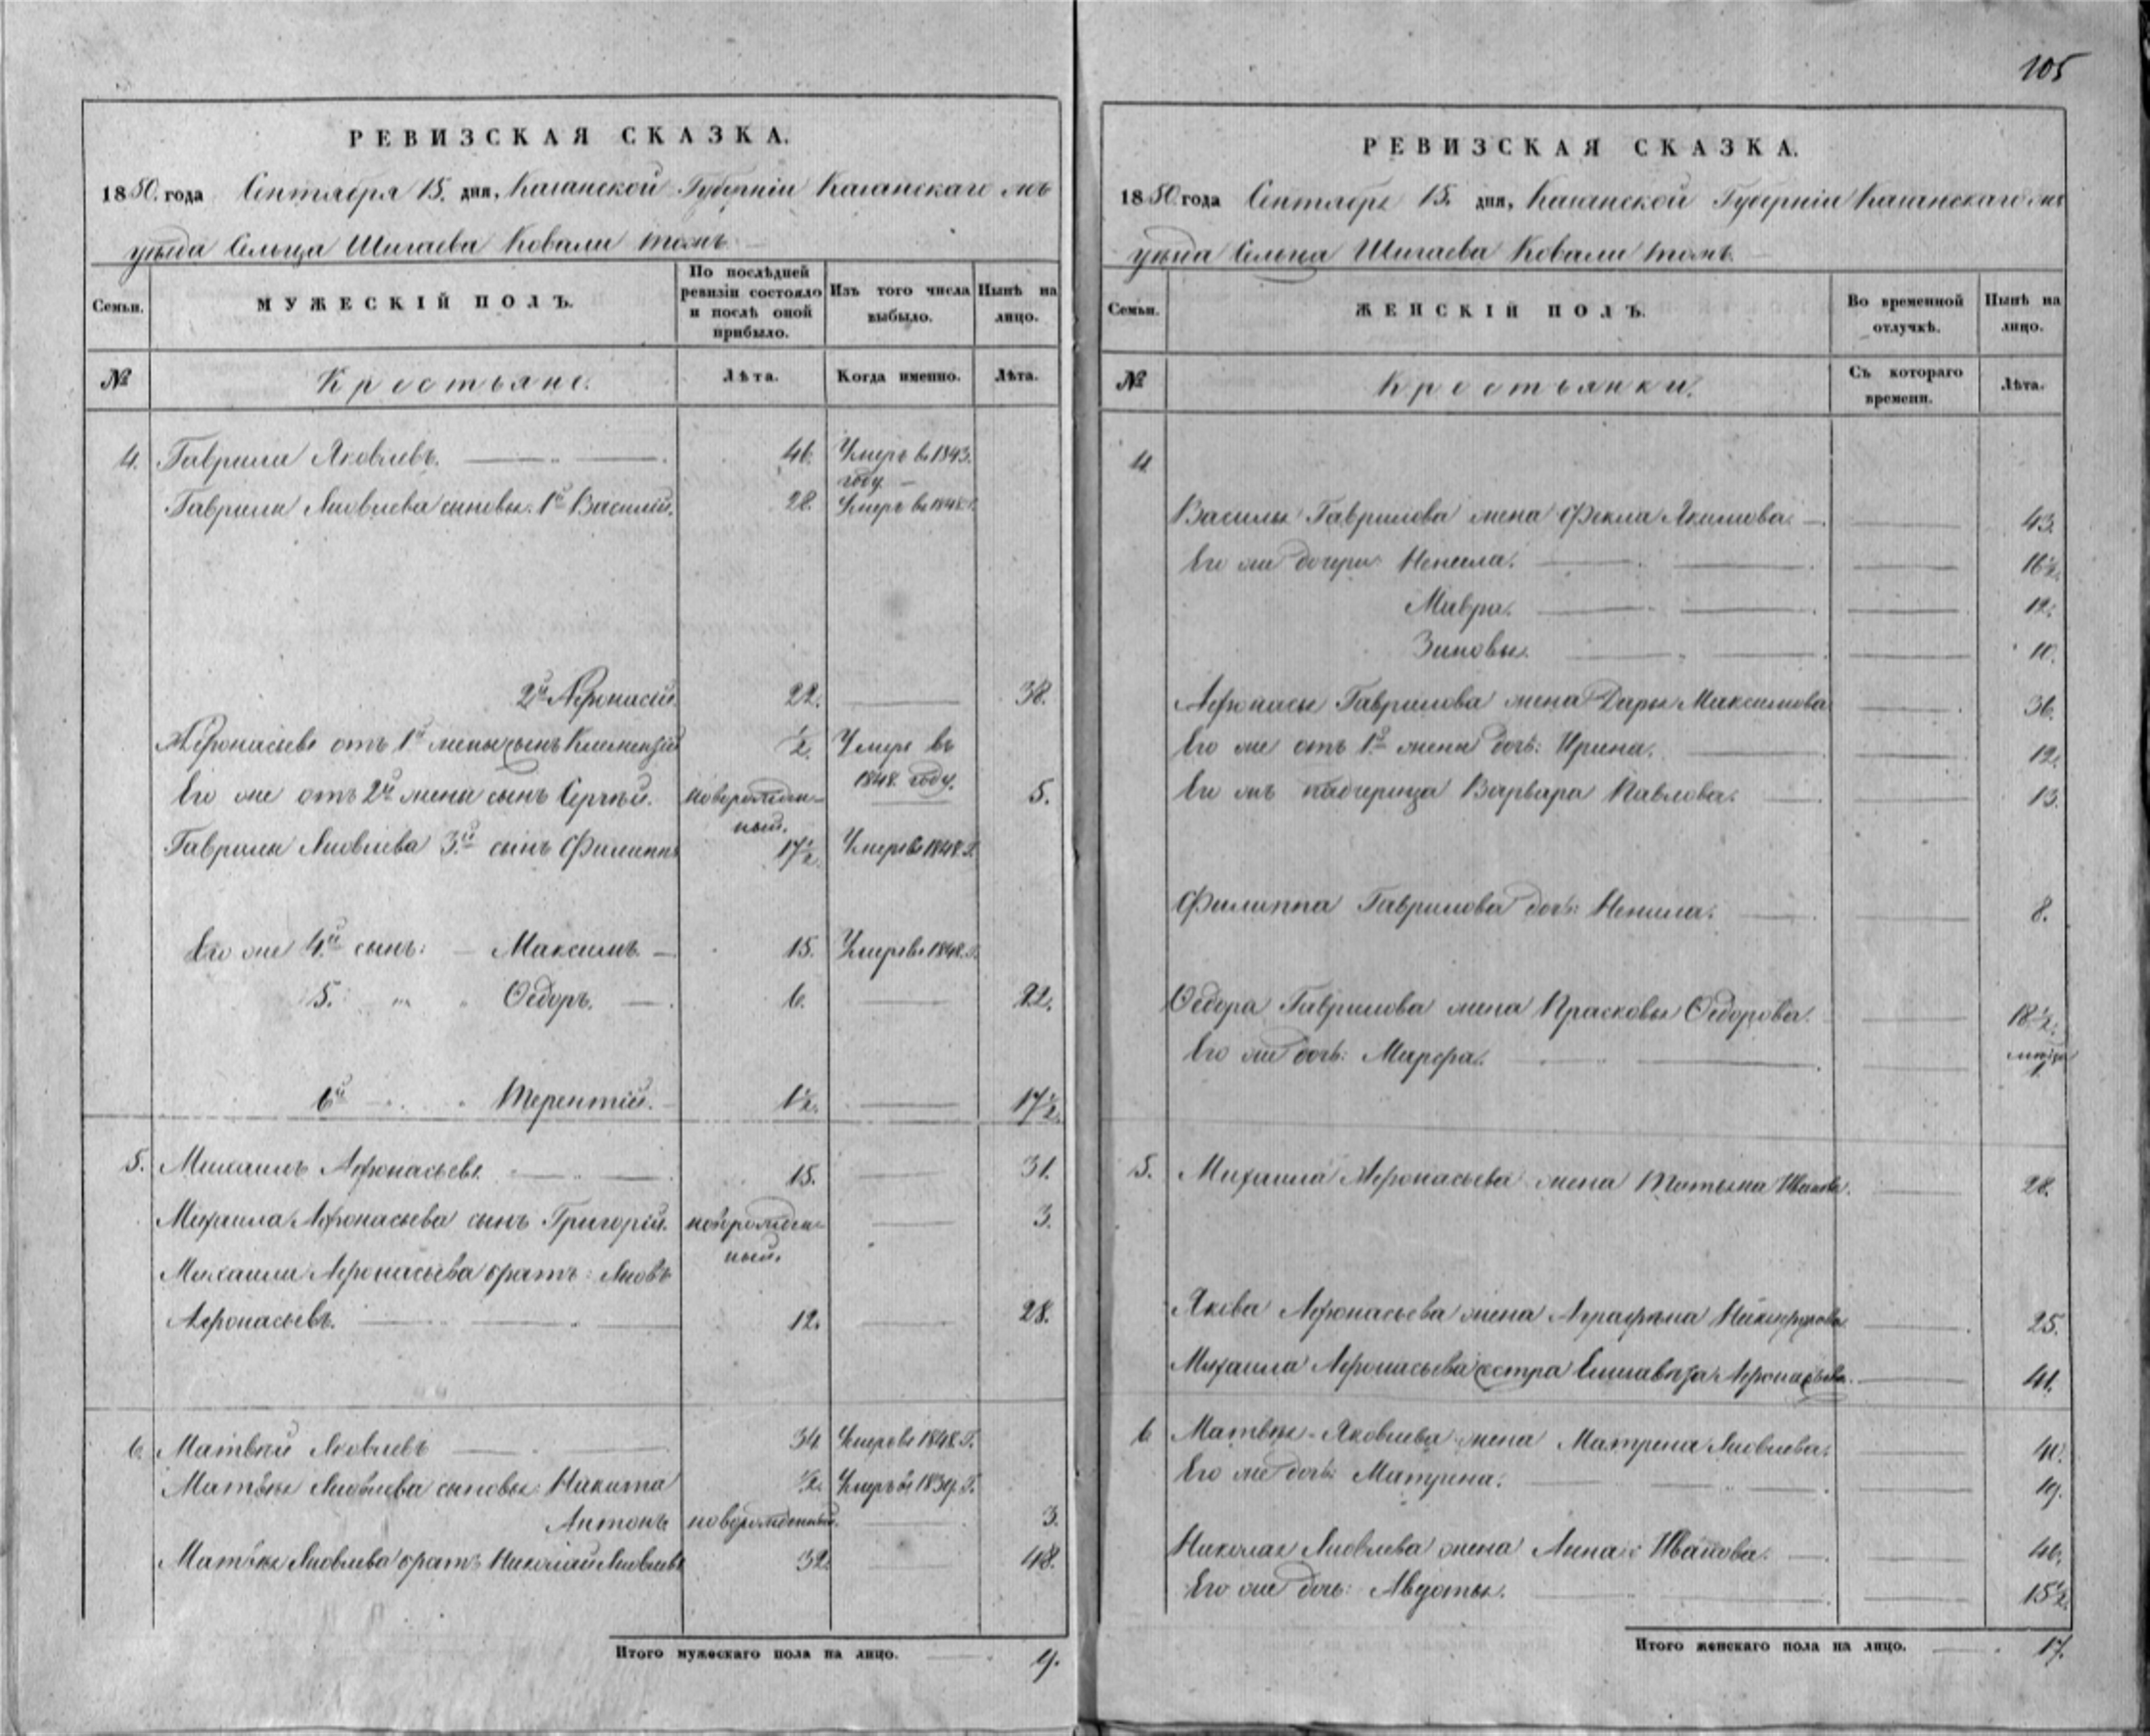 105
РЕВИЗСКАЯ СКАЗКА.
1850. года Сентября 15. дня, Казанской Губерніи Казанскаго
уѣзда Сельца Шигаева Ковали тожъ
Семьи.
МУЖЕСКІЙ ПОЛЪ.
По послѣдней
ревизіи состояло
и послѣ оной
прибыло.
Изъ того числа
выбыло.
Нынѣ на
лицо.
№
Крестьяне.
Лѣта.
Когда именно.
Лѣта.
4. Гаврила Яковлевъ. 46. Умеръ въ 1843.
году
Гаврилы Яковлева сыновья. 1й Василій. 28. Умеръ въ 1848.
2й Афонасій 22. 38.
Афонасьева отъ 1й жены сынъ Климентій ½ Умеръ въ
1848. году.
Его же отъ 2й жены сынъ Сергѣй. новорожден-
ный. 5.
Гаврилы Яковлева 3й сынъ Филиппъ 17½ Умеръ въ 1848. г.
Его же 4й сынъ: Максимъ 15. Умеръ въ 1848. г.
5. " " Ѳедоръ. 6. 22.
6й " Терентій. 1½. 17½.
5. Михаилъ Афонасьевъ. 15. 31.
Михаила Афонасьева сынъ Григорій. новорожден-
ный. 3.
Михаила Афонасьева братъ: Яковъ
Афонасьевъ. 12. 28.
6. Матвѣй Яковлевъ 34 Умеръ въ 1848. г.
Матвѣя Яковлева сыновья: Никита ½. Умеръ въ 1834. г.
Антонъ новорожденный. 3.
Матвѣя Яковлева братъ Николай Яковлевъ 32. 48.
Итого мужескаго пола на лицо. 9.
РЕВИЗСКАЯ СКАЗКА.
1850. года Сентября 15. дня, Казанской Губерніи Казанскаго
уѣзда Сельца Шигаева Ковали тожъ.
Семьи.
ЖЕНСКІЙ ПОЛЪ.
Во временной
отлучкѣ.
Нынѣ на
лицо.
№
Крестьянки.
Съ котораго
времени.
Лѣта.
4
Василья Гаврилова жена Фекла Якимова. 43.
Его же дочери: Ненила. 16½.
Мавра. 12.
Зиновья. 10.
Афонасья Гаврилова жена Дарья Максимова 36.
Его же отъ 1й жены дочь: Ирина. 12.
Его жъ падчерица Варвара Павлова. 13.
Филиппа Гаврилова дочь: Ненила. 8.
Ѳедора Гаврилова жена Прасковья Ѳедорова. 18½.
Его же дочь: Марфа.
5. Михаила Афонасьева жена Татьяна Иванова. 28.
Якова Афонасьева жена Аграфѣна Никифорова 25.
Михаила Афонасьева сестра Елизавѣта Афонасьева. 41.
6 Матвѣя Яковлева жена Матрена Яковлева. 40.
Его же дочь: Матрена. 19.
Николая Яковлева жена Анна Иванова. 46.
Его же дочь: Авдотья. 15½.
Итого женскаго пола на лицо. 17.